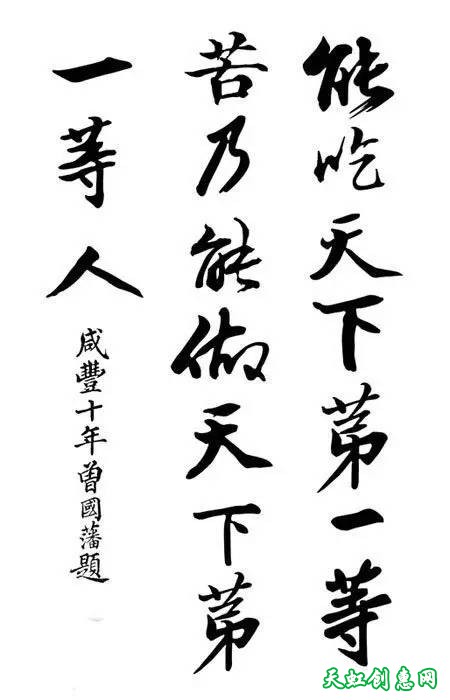 能吃天下第一等
苦乃能做天下第
一等人
咸豐十年曾國藩題
天虹创惠网